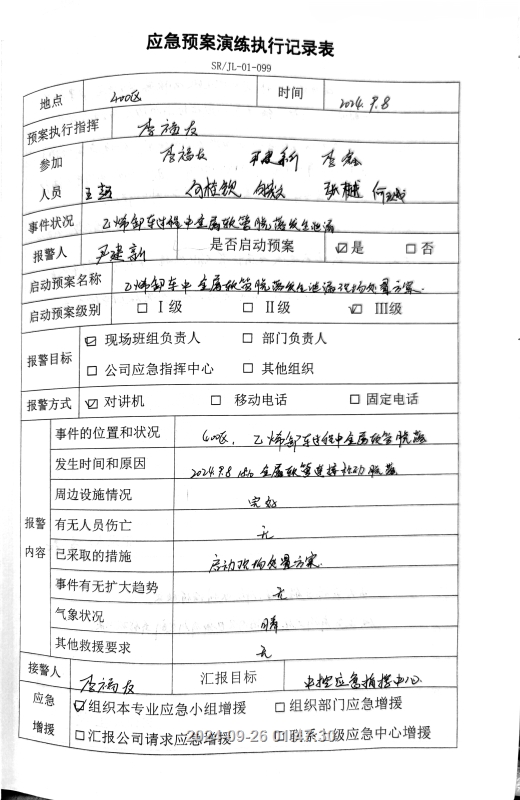 应急预案演练执行记录表
SR/JL-01-099
地点 400区 时间 2024.9.8
预案执行指挥 李福友
参加人员 李福友
事件状况 乙烯卸车过程中金属软管脱落发生泄漏
报警人 尹建新 是否启动预案 ☑是 □否
启动预案名称 乙烯卸车中金属软管脱落发生泄漏现场处置方案.
启动预案级别 □Ⅰ级 □Ⅱ级 ☑Ⅲ级
报警目标 ☑现场班组负责人 □部门负责人
□公司应急指挥中心 □其他组织
报警方式 ☑对讲机 □移动电话 □固定电话
报警内容
事件的位置和状况 400区, 乙烯卸车过程中金属软管脱落
发生时间和原因 2024.9.8 金属软管连接松动脱落
周边设施情况 完好
有无人员伤亡 无
已采取的措施 启动现场处置方案.
事件有无扩大趋势 无
气象状况 晴
其他救援要求 无
接警人 李福友 汇报目标 中控应急指挥中心
应急增援 ☑组织本专业应急小组增援 □组织部门应急增援
□汇报公司请求应急增援 □联系上级应急中心增援